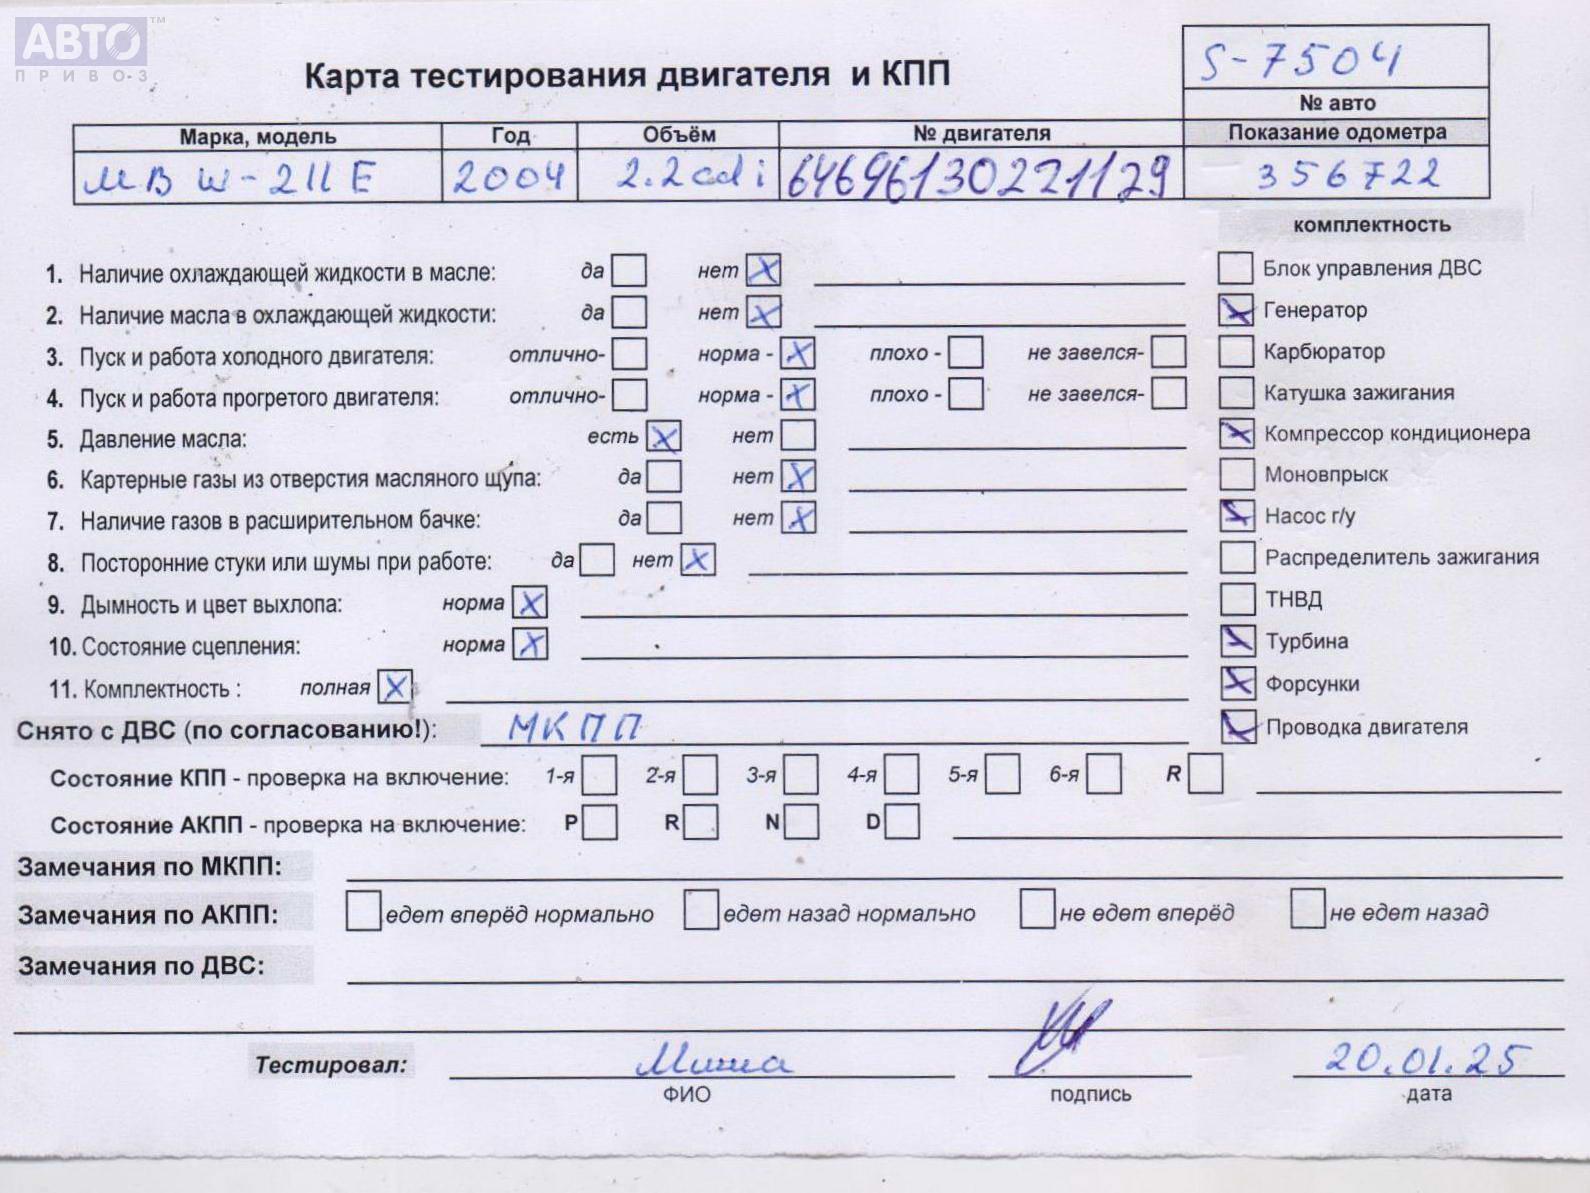 АВТО™
ПРИВО-З
Карта тестирования двигателя и КПП
S-7504
№ авто
Марка, модель Год Объём № двигателя Показание одометра
МВ W-211 E 2004 2.2cdi 64696130221129 356722
комплектность
1. Наличие охлаждающей жидкости в масле: да нет X
Блок управления ДВС
2. Наличие масла в охлаждающей жидкости: да нет X
X Генератор
3. Пуск и работа холодного двигателя: отлично- норма - X плохо - не завелся-
Карбюратор
4. Пуск и работа прогретого двигателя: отлично- норма - X плохо - не завелся-
Катушка зажигания
5. Давление масла: есть X нет
X Компрессор кондиционера
6. Картерные газы из отверстия масляного щупа: да нет X
Моновпрыск
7. Наличие газов в расширительном бачке: да нет X
X Насос г/у
8. Посторонние стуки или шумы при работе: да нет X
Распределитель зажигания
9. Дымность и цвет выхлопа: норма X
ТНВД
10. Состояние сцепления: норма X
X Турбина
11. Комплектность : полная X
X Форсунки
Снято с ДВС (по согласованию!): МКПП
X Проводка двигателя
Состояние КПП - проверка на включение: 1-я 2-я 3-я 4-я 5-я 6-я R
Состояние АКПП - проверка на включение: P R N D
Замечания по МКПП:
Замечания по АКПП: едет вперёд нормально едет назад нормально не едет вперёд не едет назад
Замечания по ДВС:
Тестировал: Миша 20.01.25
ФИО подпись дата